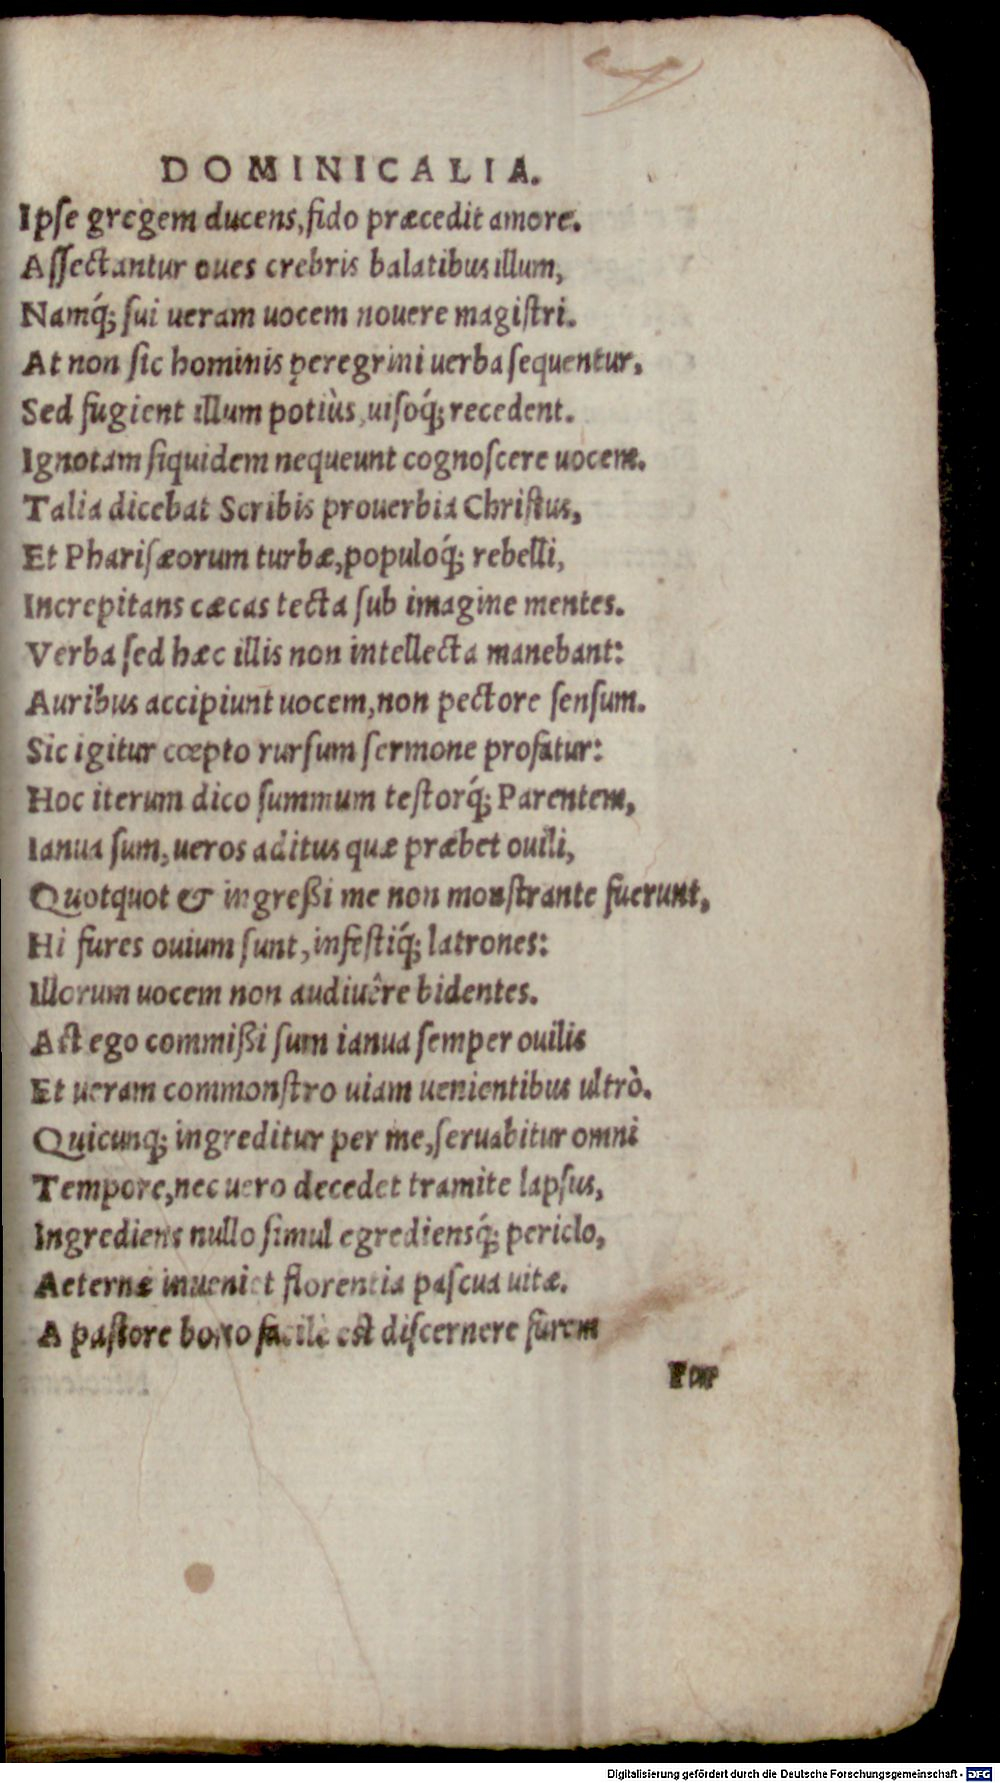 DOMINICALIA.
Ipſe gregem ducens, fido præcedit amore.
Aſſectantur oues crebris balatibus illum,
Namq́; ſui ueram uocem nouere magiſtri.
At non ſic hominis peregrini uerba ſequentur.
Sed fugient illum potiùs, uiſoq́; recedent.
Ignotam ſiquidem nequeunt cognoſcere uocem.
Talia dicebat Scribis prouerbia Chriſtus,
Et Phariſæorum turbæ, populoq́; rebelli,
Increpitans cæcas tecta ſub imagine mentes.
Verba ſed hæc illis non intellecta manebant:
Auribus accipiunt uocem, non pectore ſenſum.
Sic igitur cœpto rurſum ſermone profatur:
Hoc iterum dico ſummum teſtorq́; Parentem,
Ianua ſum, ueros aditus quæ præbet ouili,
Quotquot & ingreßi me non monſtrante fuerunt,
Hi fures ouium ſunt, infeſtiq́; latrones:
Illorum uocem non audiuêre bidentes.
Aſt ego commißi ſum ianua ſemper ouilis
Et ueram commonſtro uiam uenientibus ultrò.
Quicunq; ingreditur per me, ſeruabitur omni
Tempore, nec uero decedet tramite lapſus,
Ingrediens nullo ſimul egrediensq́; periclo,
Aeternæ inueniet florentia paſcua uitæ.
A paſtore bono facilè eſt diſcernere furem
Digitalisierung gefördert durch die Deutsche Forschungsgemeinschaft - DFG